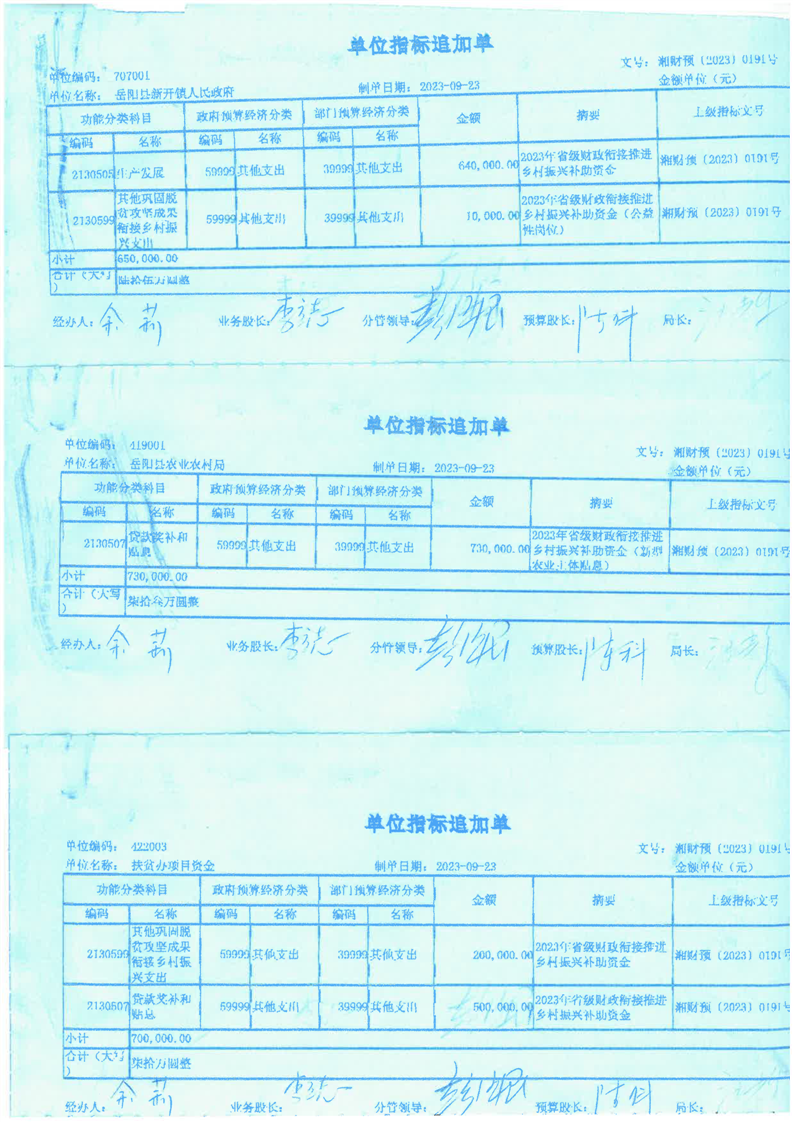 单位指标追加单
文号：湘财预（2023）0191号
单位编码：707001
金额单位（元）
单位名称：岳阳县新开镇人民政府 制单日期：2023-09-23
功能分类科目 政府预算经济分类 部门预算经济分类 金额 摘要 上级指标文号
编码 名称 编码 名称 编码 名称
2130505 生产发展 59999 其他支出 39999 其他支出 640,000.00 2023年省级财政衔接推进乡村振兴补助资金 湘财预（2023）0191号
2130599 其他巩固脱贫攻坚成果衔接乡村振兴支出 59999 其他支出 39999 其他支出 10,000.00 2023年省级财政衔接推进乡村振兴补助资金（公益性岗位） 湘财预（2023）0191号
小计 650,000.00
合计（大写） 陆拾伍万圆整
经办人： 业务股长： 分管领导： 预算股长： 局长：
单位指标追加单
单位编码：419001 文号：湘财预（2023）0191号
单位名称：岳阳县农业农村局 制单日期：2023-09-23 金额单位（元）
功能分类科目 政府预算经济分类 部门预算经济分类 金额 摘要 上级指标文号
编码 名称 编码 名称 编码 名称
2130507 贷款奖补和贴息 59999 其他支出 39999 其他支出 730,000.00 2023年省级财政衔接推进乡村振兴补助资金（新型农业主体贴息） 湘财预（2023）0191号
小计 730,000.00
合计（大写） 柒拾叁万圆整
经办人： 业务股长： 分管领导： 预算股长： 局长：
单位指标追加单
单位编码：422003 文号：湘财预（2023）0191号
单位名称：扶贫办项目资金 制单日期：2023-09-23 金额单位（元）
功能分类科目 政府预算经济分类 部门预算经济分类 金额 摘要 上级指标文号
编码 名称 编码 名称 编码 名称
2130599 其他巩固脱贫攻坚成果衔接乡村振兴支出 59999 其他支出 39999 其他支出 200,000.00 2023年省级财政衔接推进乡村振兴补助资金 湘财预（2023）0191号
2130507 贷款奖补和贴息 59999 其他支出 39999 其他支出 500,000.00 2023年省级财政衔接推进乡村振兴补助资金 湘财预（2023）0191号
小计 700,000.00
合计（大写） 柒拾万圆整
经办人： 业务股长： 分管领导： 预算股长： 局长：